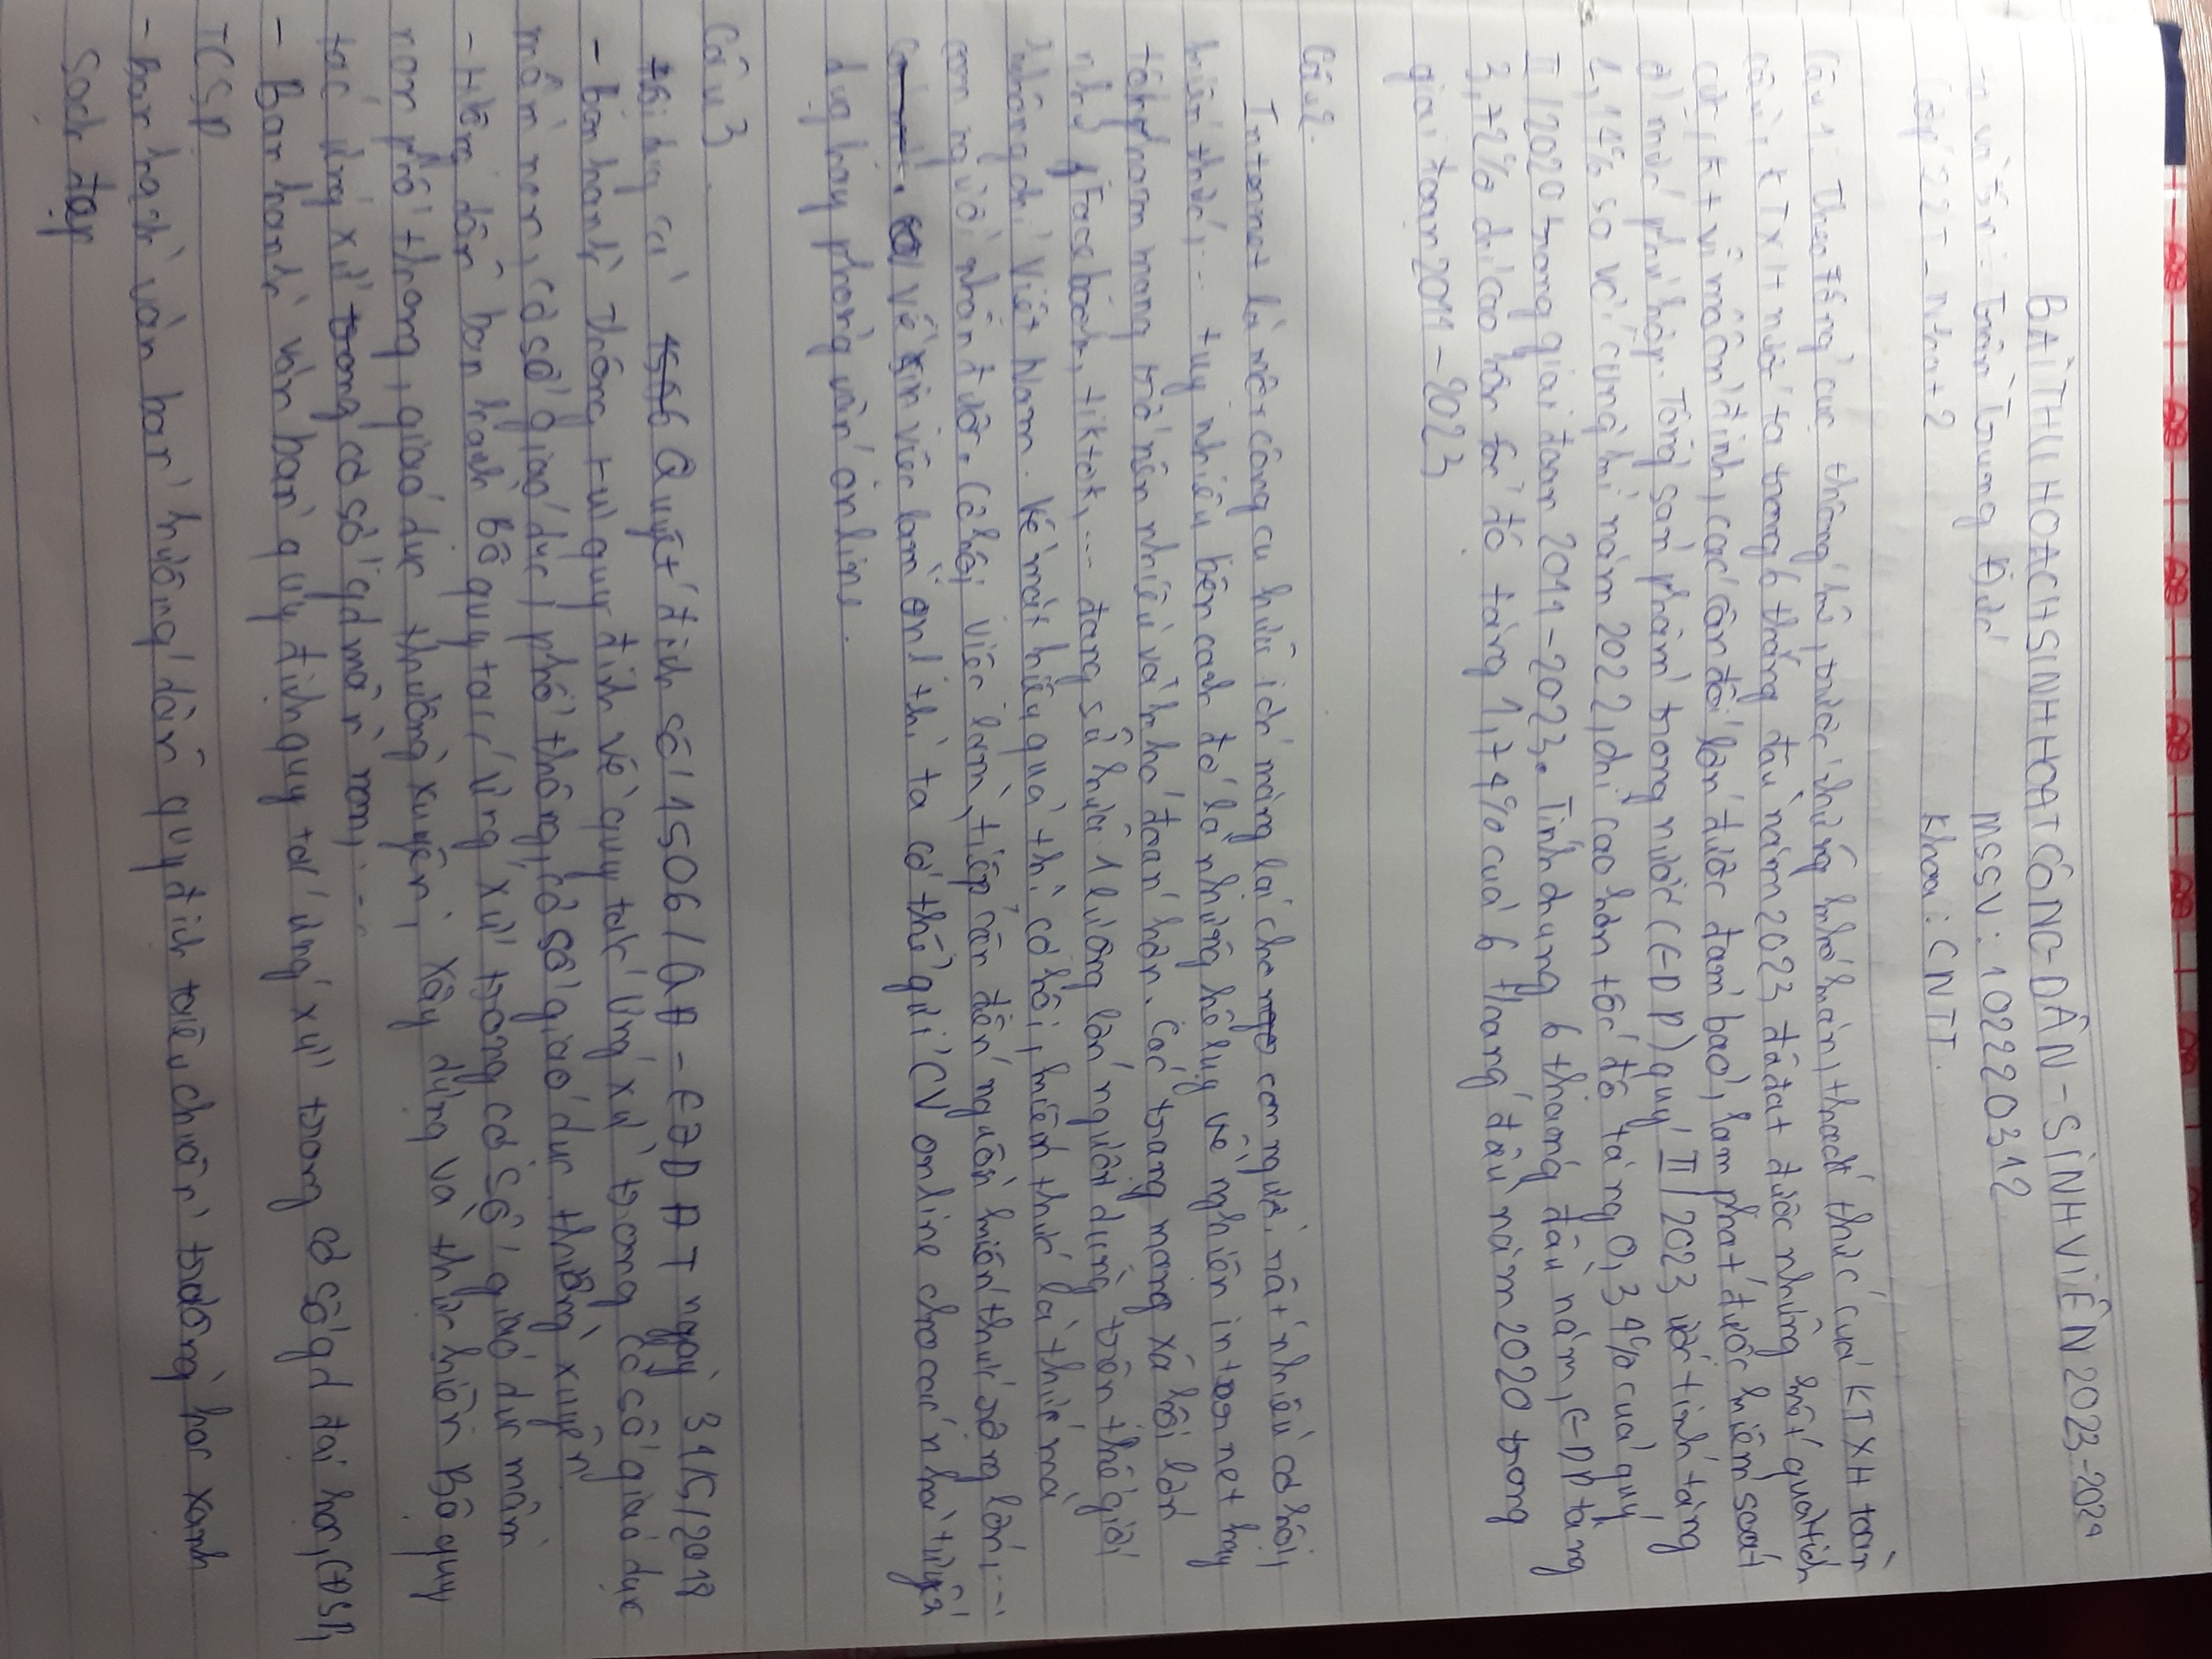 BÀI THU HOẠCH SINH HOẠT CÔNG-DÂN-SINH VIÊN 2023-2024
và tên: Trần Trung Đức MSSV: 102220312
Lớp 22T-Nhat2 Khoa: CNTT.
Câu 1: Theo tổng cục thống kê, trước những khó khăn, thách thức của KTXH toàn
cầu, KTXH nước ta trong 6 tháng đầu năm 2023 đã đạt được những kết quả tích
cực, KT vĩ mô ổn định, các cân đối lớn được đảm bảo, lạm phát được kiểm soát
ở mức phù hợp. Tổng sản phẩm trong nước (GDP) quý II/2023 ước tính tăng
4,14% so với cùng kì năm 2022, chỉ cao hơn tốc độ tăng 0,34% của quý
II/2020 trong giai đoạn 2011-2023. Tính chung 6 tháng đầu năm, GDP tăng
3,72% chỉ cao hơn tốc độ tăng 1,74% của 6 tháng đầu năm 2020 trong
giai đoạn 2011-2023
Câu 2.
Internet là một công cụ hữu ích mang lại cho con người rất nhiều cơ hội,
kiến thức,... tuy nhiên bên cạnh đó là những hệ lụy về nghiện internet hay
tội phạm mạng trở nên nhiều và khó đoán hơn. Các trang mạng xã hội lớn
như Facebook, tiktok,... đang sở hữu 1 lượng lớn người dùng trên thế giới
không chỉ Việt Nam. Về mặt hiệu quả thì cơ hội, kiến thức là thứ mà
con người nhận được. Cơ hội việc làm, tiếp cận đến nguồn kiến thức rộng lớn,...
về xin việc làm onl thì ta có thể gửi CV online cho các nhà tuyển
dụng hay phỏng vấn online.
Câu 3
Quyết định số 1506/QĐ-GDĐT ngày 31/5/2019
- Ban hành Thông tư quy định về quy tắc ứng xử trong cơ sở giáo dục
mầm non, cơ sở giáo dục phổ thông, cơ sở giáo dục thường xuyên
- Hướng dẫn ban hành Bộ quy tắc ứng xử trong cơ sở giáo dục mầm
non phổ thông, giáo dục thường xuyên, xây dựng và thực hiện Bộ quy
tắc ứng xử trong cơ sở gd mầm non,...
- Ban hành văn bản quy định quy tắc ứng xử trong cơ sở gd đại học, CĐSP,
TCSP
- Ban hành văn bản hướng dẫn quy định tiêu chuẩn trường học xanh
sạch đẹp